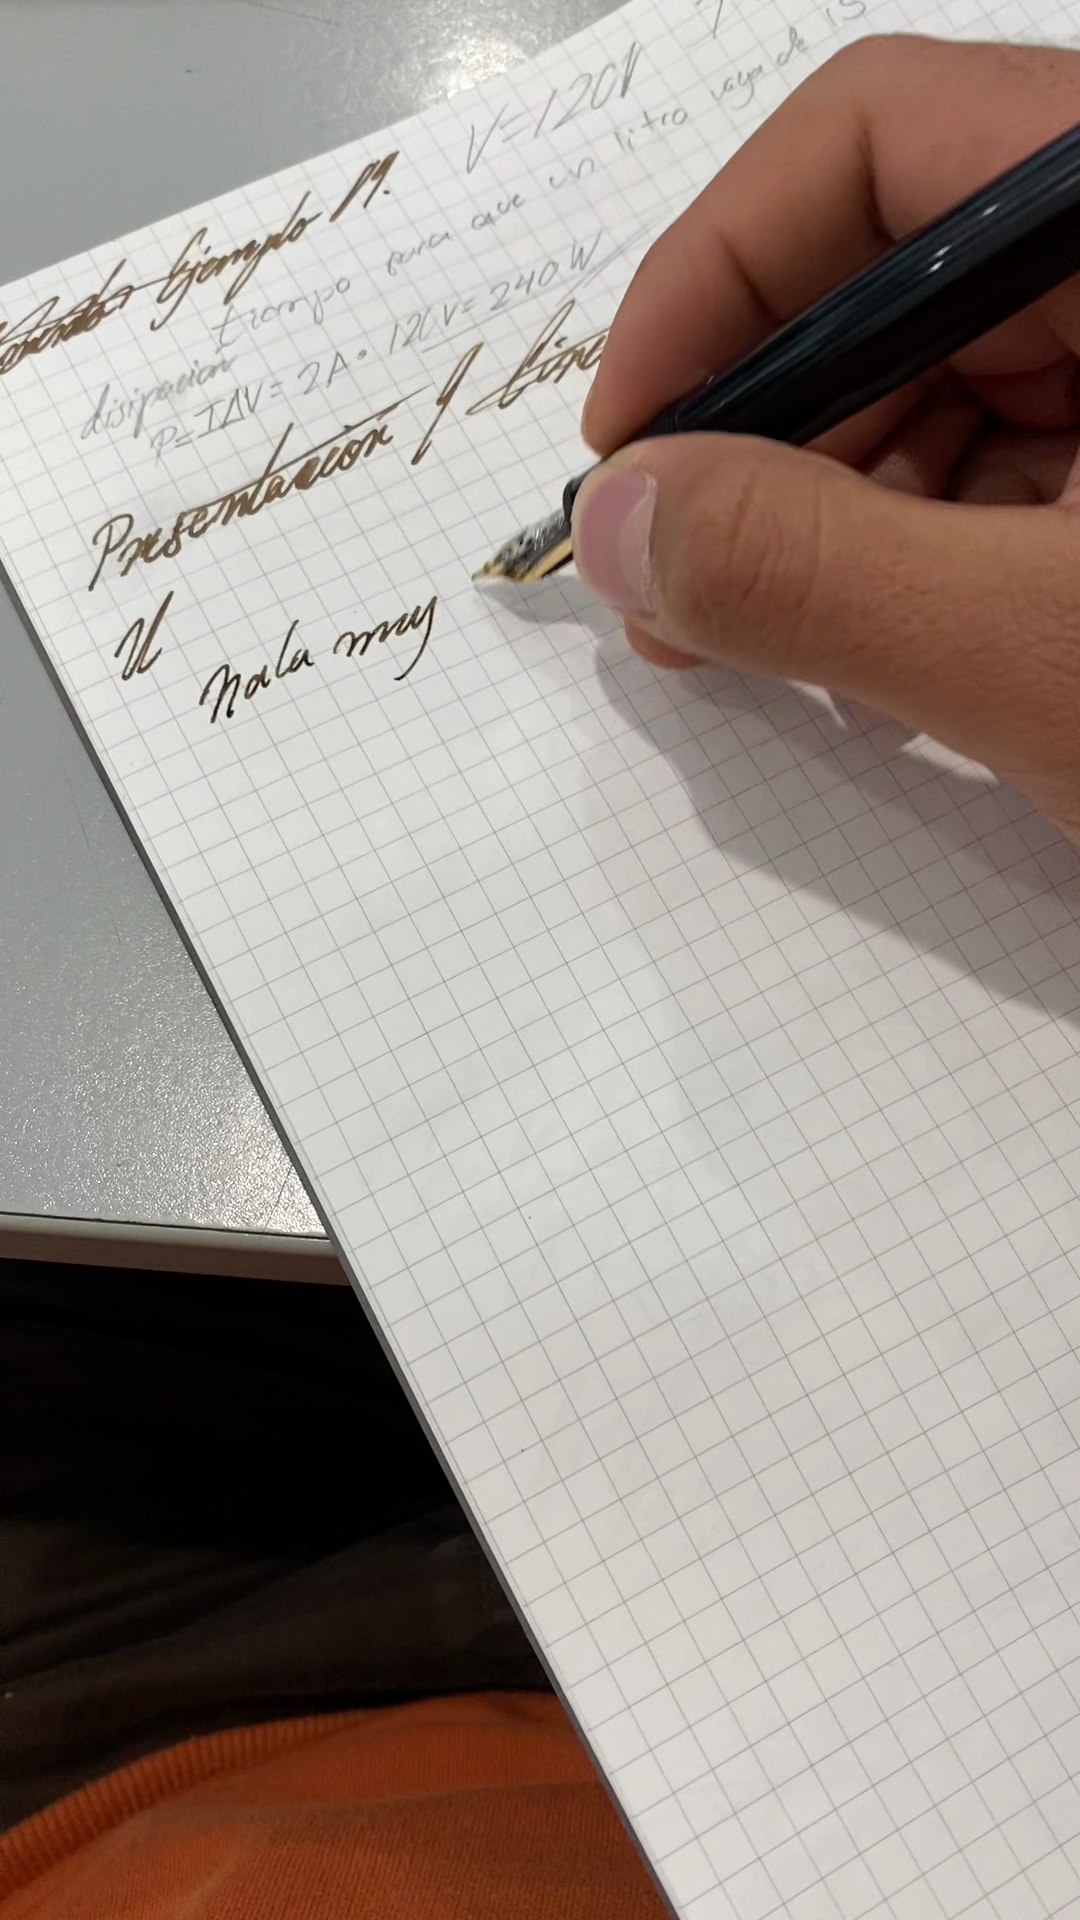 V=120V
Ejemplo
tiempo para que un litro vaya de 15
disipación
P=IΔV= 2A • 120V= 240W
Presentación y
nala muy